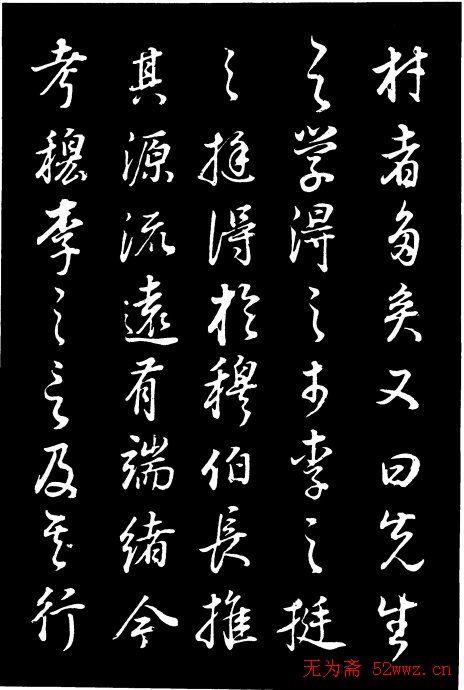 材者多矣又曰先生
之学得之于李之挺
之挺得於穆伯長推
其源流遠有端緒今
考穆李之言及其行
无为斋 52wwz.cn